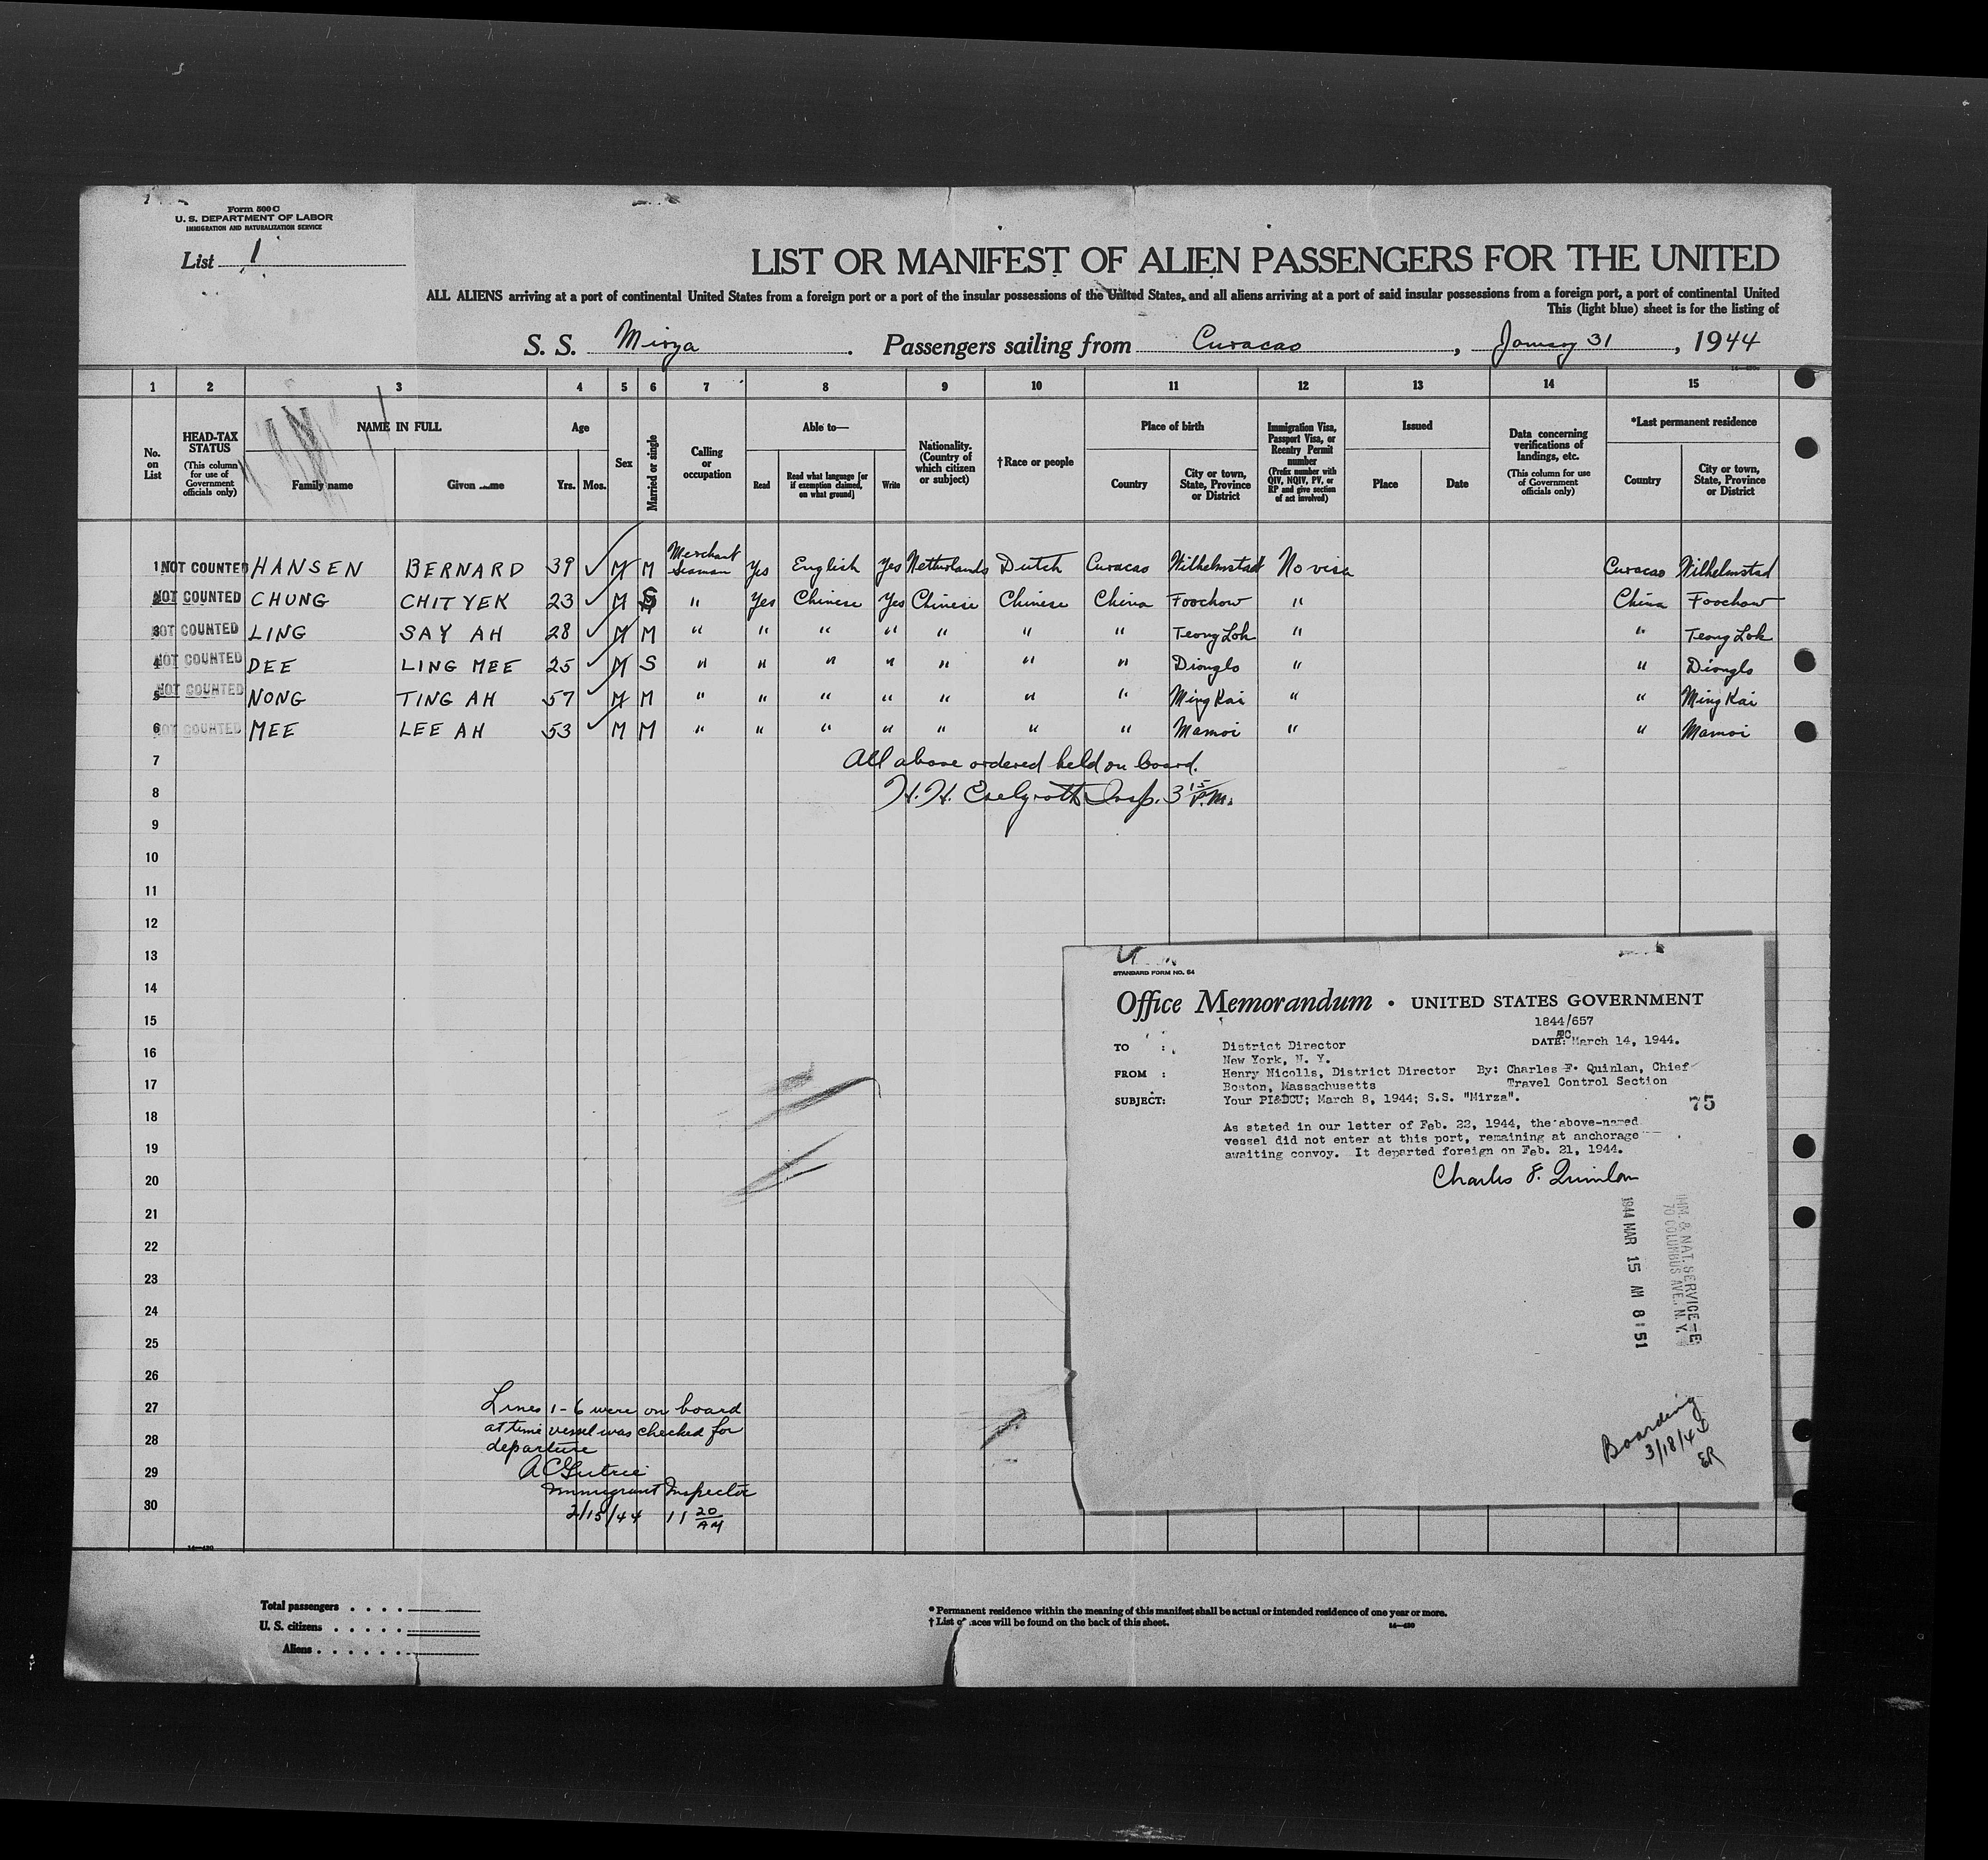 Form 500 C
U. S. DEPARTMENT OF LABOR
IMMIGRATION AND NATURALIZATION SERVICE
List 1
LIST OR MANIFEST OF ALIEN PASSENGERS FOR THE UNITED
ALL ALIENS arriving at a port of continental United States from a foreign port or a port of the insular possessions of the United States, and all aliens arriving at a port of said insular possessions from a foreign port, a port of continental United
This (light blue) sheet is for the listing of
S. S. Mirza . Passengers sailing from Curacao , January 31 , 1944
1 2 3 4 5 6 7 8 9 10 11 12 13 14 15
No. on List
HEAD-TAX STATUS (This column for use of Government officials only)
NAME IN FULL
Family name
Given name
Age
Yrs. Mos.
Sex
Married or single
Calling or occupation
Able to—
Read
Read what language [or if exemption claimed, on what ground]
Write
Nationality. (Country of which citizen or subject)
†Race or people
Place of birth
Country
City or town, State, Province or District
Immigration Visa, Passport Visa, or Reentry Permit number (Prefix number with QIV, NQIV, PV, or RP and give section of act involved)
Issued
Place
Date
Data concerning verifications of landings, etc. (This column for use of Government officials only)
*Last permanent residence
Country
City or town, State, Province or District
1 NOT COUNTED HANSEN BERNARD 39 M M Merchant Seaman Yes English Yes Netherlands Dutch Curacao Wilhelmstad No visa Curacao Wilhelmstad
2 NOT COUNTED CHUNG CHIT YEK 23 M S " Yes Chinese Yes Chinese Chinese China Foochow " China Foochow
3 NOT COUNTED LING SAY AH 28 M M " " " " " " " Teong Loh " " Teong Loh
4 NOT COUNTED DEE LING MEE 25 M S " " " " " " " Dionglo " " Dionglo
5 NOT COUNTED NONG TING AH 57 M M " " " " " " " Ming Kai " " Ming Kai
6 NOT COUNTED MEE LEE AH 53 M M " " " " " " " Mamoi " " Mamoi
7 All above ordered held on board.
8 H. H. Insp. 3 15 P.M.
9
10
11
12
13
14
15
16
17
18
19
20
21
22
23
24
25
26
27
28
29
30
STANDARD FORM NO. 64
Office Memorandum • UNITED STATES GOVERNMENT
1844/657
DATE: March 14, 1944.
TO : District Director
New York, N. Y.
FROM : Henry Nicolls, District Director By: Charles F. Quinlan, Chief
Boston, Massachusetts Travel Control Section
SUBJECT: Your PI&DCU; March 8, 1944; S.S. "Mirza".
75
As stated in our letter of Feb. 22, 1944, the above-named
vessel did not enter at this port, remaining at anchorage
awaiting convoy. It departed foreign on Feb. 21, 1944.
Charles F. Quinlan
1944 MAR 15 AM 8:51
IMM. & NAT. SERVICE
70 COLUMBUS AVE. N. Y.
Boarding
3/18/4
ER
Lines 1-6 were on board
at time vessel was checked for
departure
Immigrant Inspector
2/15/44 11 20 AM
Total passengers . . . .
U. S. citizens . . . . .
Aliens . . . . . .
* Permanent residence within the meaning of this manifest shall be actual or intended residence of one year or more.
† List of races will be found on the back of this sheet.